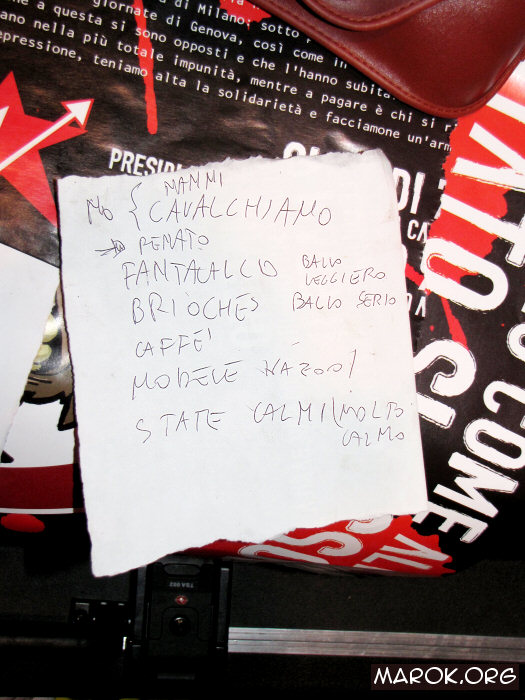 di Milano; sotto
giornate di Genova, così come in
a questa si sono opposti e che l'hanno subita
ano nella più totale impunità, mentre a pagare è chi si ri
epressione, teniamo alta la solidarietà e facciamone un'arm
PRESIDI
NO { NANNI
CAVALCHIAMO
RENATO
FANTACALCIO BALLO LEGGIERO
BRIOCHES BALLO SERIO
CAFFE'
MODELE
STATE CALMI (MOLTO CALMO
COME
TSA 002
MAROK.ORG